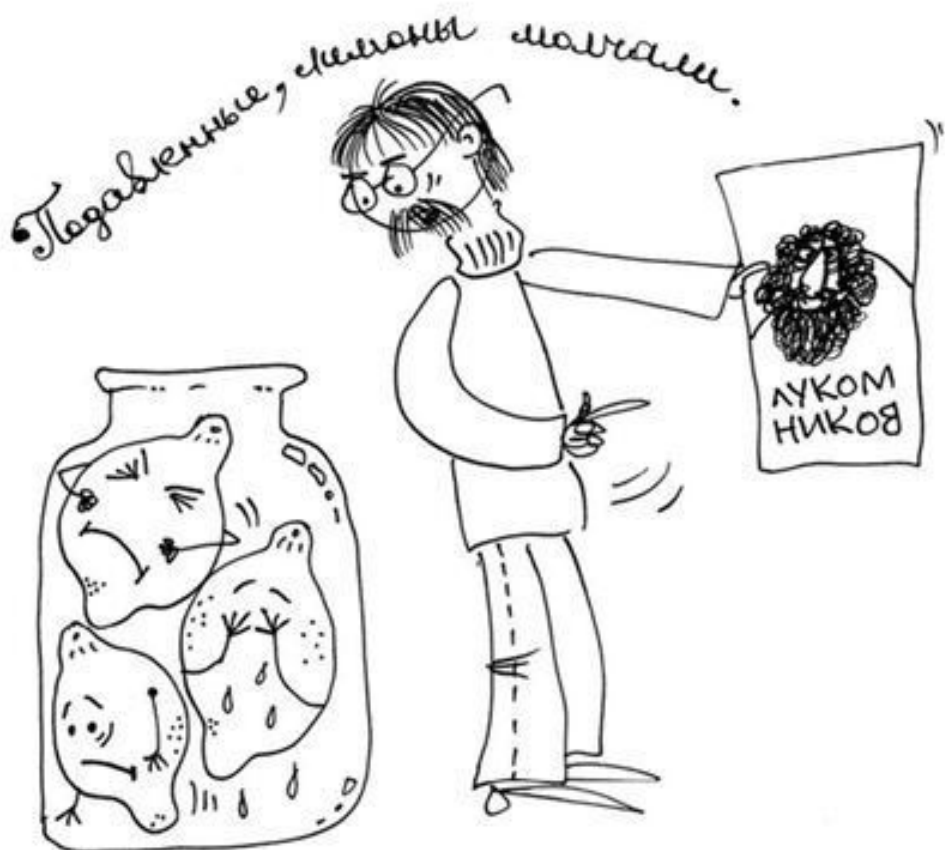 Подавленные, лимоны молчали.
ЛУКОМ
НИКОВ